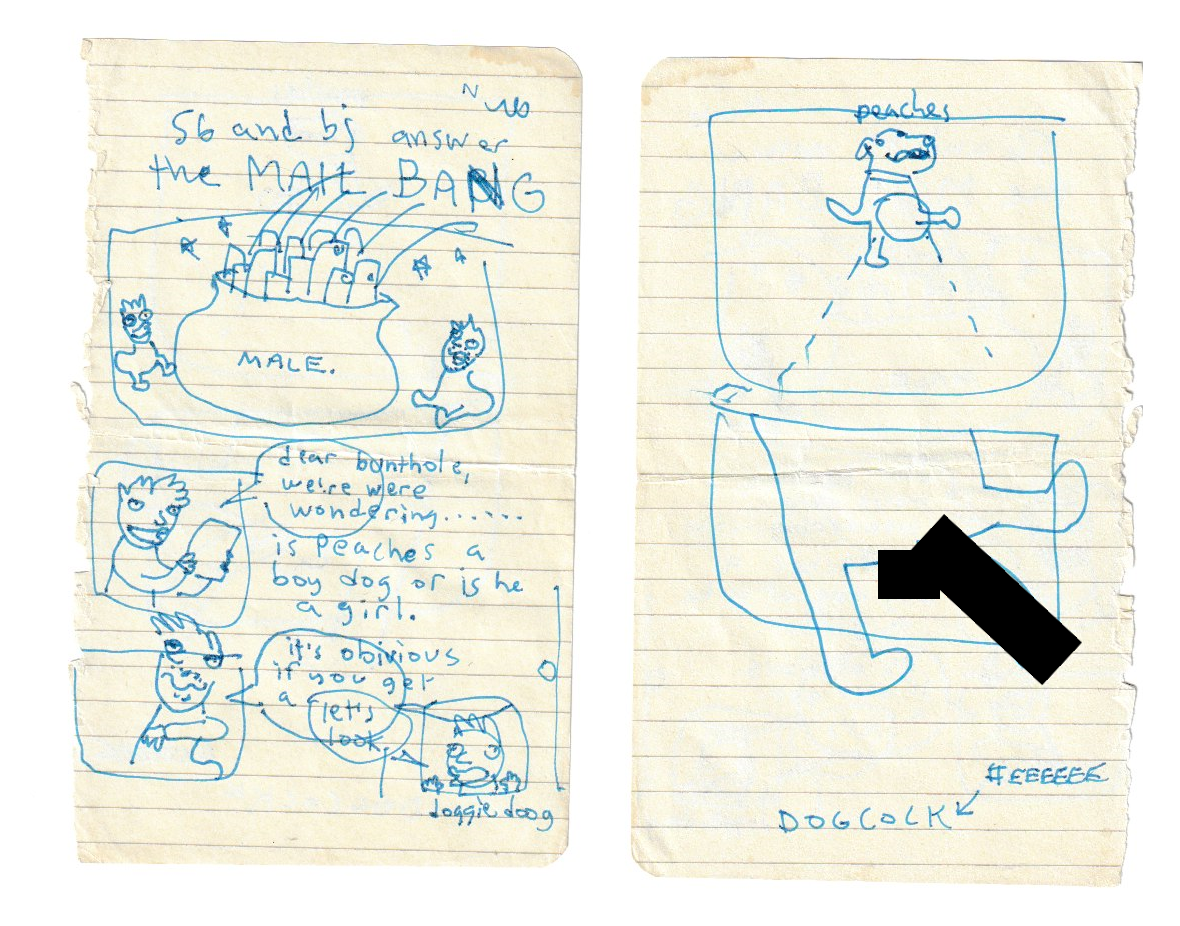 56 and bj answer
the MAIL BANG
MALE.
dear bunthole,
we're were
wondering......
is peaches a
boy dog or is he
a girl.
it's obivious
if you get
a
let's
look
doggie doog
peaches
#EEEEEE
DOGCOCK